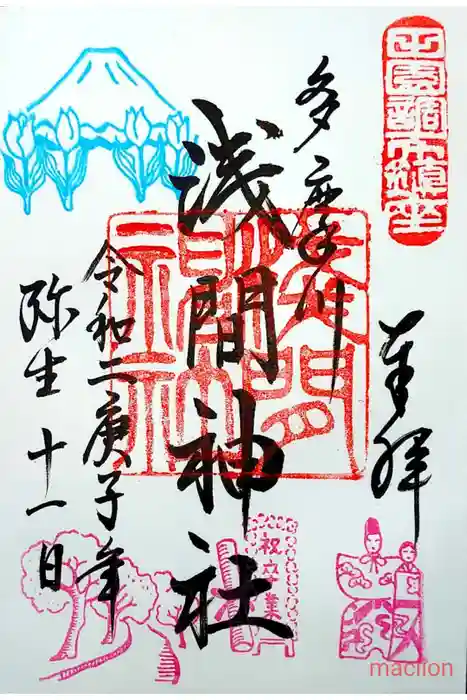 奉拝
多摩川
浅間神社
令和二庚子年
弥生十一日
田園調布鎮座
浅間神社
祝卒業
maclion